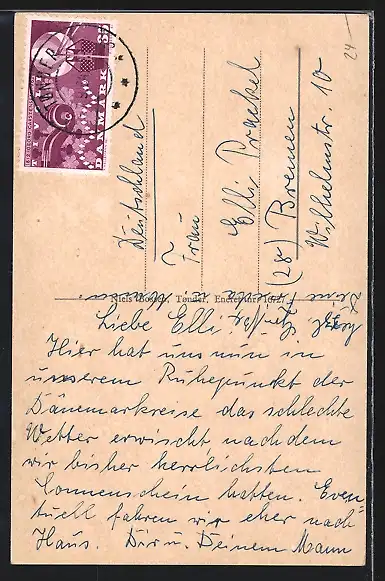 24
TØNDER
TIVOLI
DANMARK
Deutschland
Frau
Elli Prackel
(28) Bremen
Wilhelmstr. 10
Niels Kosten, Tønder, Eneret Nr.
Liebe Elli,
Hier hat uns nun in
unserem Ruhepunkt der
Dänemarkreise das schlechte
Wetter erwischt nachdem
wir bisher herrlichsten
Sonnenschein hatten. Even
tuell fahren wir eher nach
Haus. Dir u. Deinem Mann